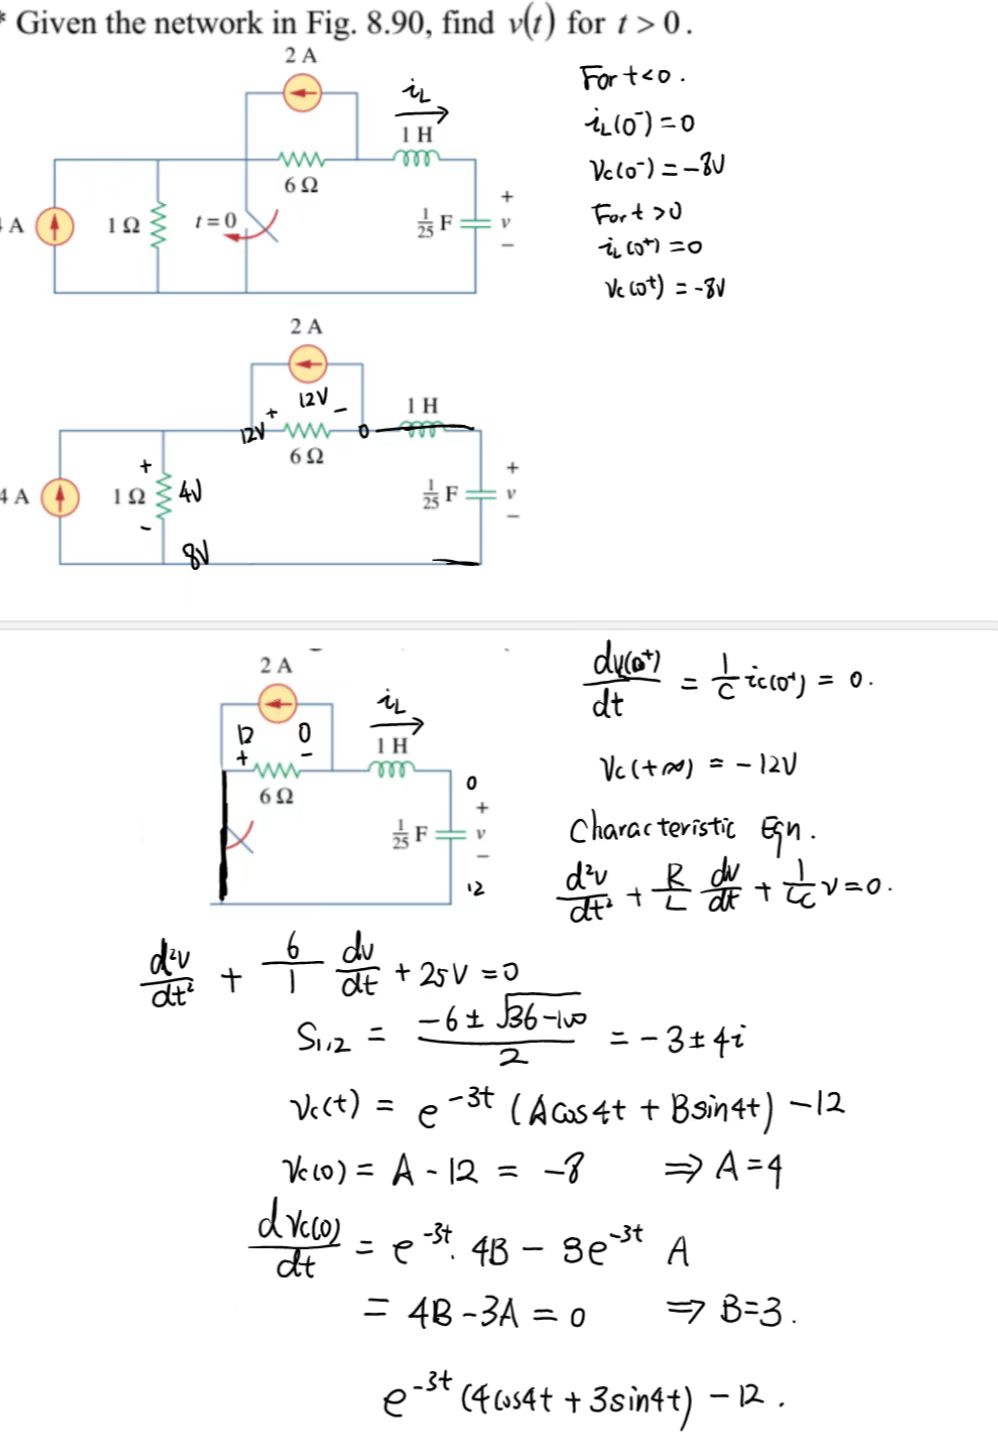 * Given the network in Fig. 8.90, find v(t) for t > 0.
2 A
iL
1 H
6 Ω
A
1 Ω
t = 0
1/25 F
+
v
−
For t<0.
iL(0⁻) = 0
Vc(0⁻) = -8V
For t >0
iL(0⁺) = 0
Vc(0⁺) = -8V
2 A
12V
+
−
12V
0
1 H
6 Ω
4 A
1 Ω
+
−
4V
8V
1/25 F
+
v
−
2 A
iL
12
+
0
−
1 H
6 Ω
0
1/25 F
+
v
−
12
dv(0⁺)/dt = 1/C ic(0⁺) = 0.
Vc(+∞) = -12V
Characteristic Eqn.
d²v/dt² + R/L dv/dt + 1/LC v = 0.
d²v/dt² + 6/1 dv/dt + 25V = 0
S1,2 = (-6 ± √36-100)/2 = -3 ± 4i
Vc(t) = e^-3t (Acos4t + Bsin4t) - 12
Vc(0) = A - 12 = -8 ⇒ A = 4
dVc(0)/dt = e^-3t. 4B - 3e^-3t A
= 4B - 3A = 0 ⇒ B = 3.
e^-3t (4cos4t + 3sin4t) - 12.